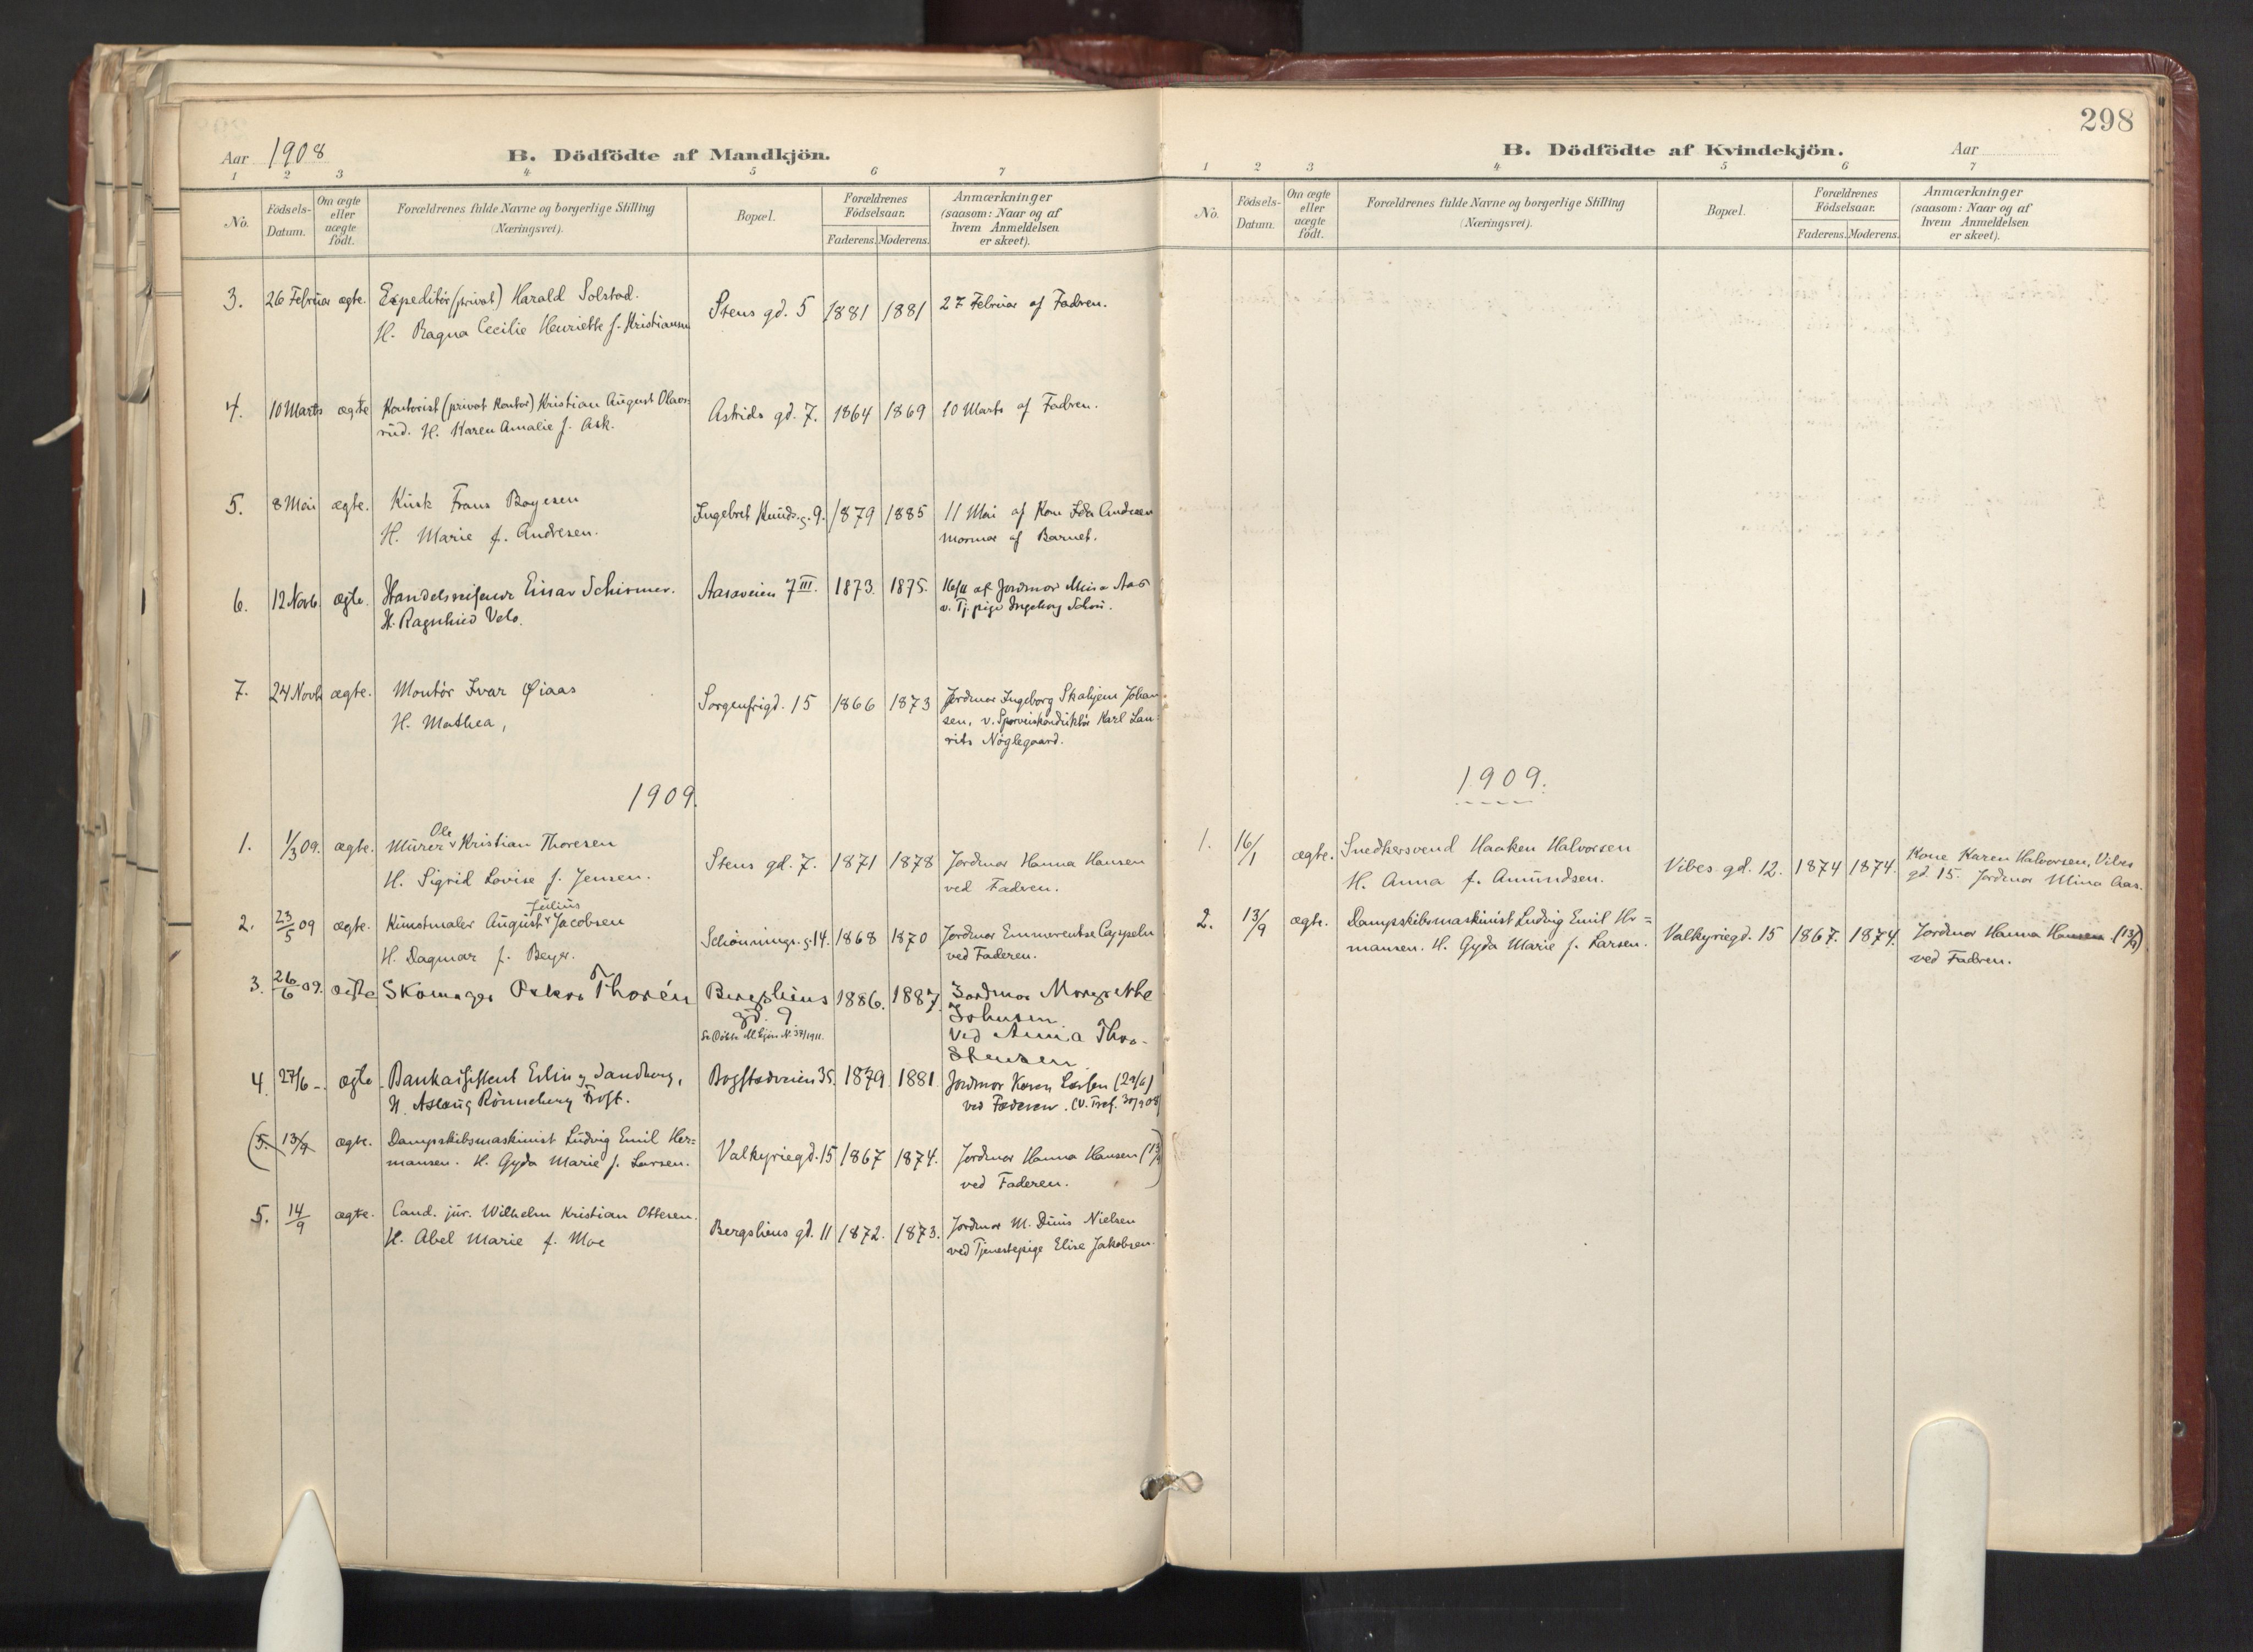 Aar 1908
B. Dödfödte af Mandkjön.
1 2 3 4 5 6 7
No.
Födsels-
Datum.
Om ægte
eller
uægte
födt.
Forældrenes fulde Navne og borgerlige Stilling
(Næringsvei).
Bopæl.
Forældrenes
Födselsaar.
Faderens. Moderens.
Anmærkninger
(saasom: Naar og af
hvem Anmeldelsen
er skeet).
3. 26 Februar ægte. Expeditör (privat) Harald Solstad. Stens gd. 5 1881 1881 27 Februar af Fadren.
H. Ragna Cecilie Henriette f. Kristiansen
4. 10 Marts ægte Kontorist (privat Kontor) Kristian August Olavs- Astrids gd. 7. 1864 1869 10 Marts af Fadren.
rud. H. Karen Amalie f. Ask.
5. 8 Mai ægte. Kusk Frans Boyesen Ingebret Knuds. g. 9. 1879 1885 11 Mai af Kone Ida Andresen
H. Marie f. Andresen. Mormor af Barnet.
6. 12 Novb. ægte. Handelsreisende Einar Schirmer. Aasaveien 7 III. 1873. 1875. 16/11 af Jordmor Mina Aas
H. Ragnhild Velo. v. Tj. pige Ingeborg
7. 24 Novb ægte. Montör Ivar Øiaas Sorgenfrigd. 15 1866 1873 Jordmor Ingeborg Skahjem Johan
H. Mathea, sen, v. Sporveiskonduktör Karl Lau-
rits Nöglegaard.
1909.
1. 1/3 09. ægte. Murer Ole Kristian Thoresen Stens gd. 7. 1871 1878 Jordmor Hanna Hansen
H. Sigrid Lovise f. Jensen. ved Fadren.
2. 23/5 09 ægte. Kunstmaler August Julius Jacobsen Schönnings. g. 14. 1868 1870 Jordmor Emmerentse Cappelen
H. Dagmar f. Beyer. ved Faderen.
3. 26/6 09. ægte Skomager Oskar Thorén Bergsliens 1886. 1887. Jordmor Margrethe
gd. 9 Johnsen
Se Döbte M. kjön N. 37/1911. Ved Anna Thor-
stensen
4. 27/6 -. ægte Bankassistent Erling Sandberg, Bogstadveien 35. 1879 1881. Jordmor Karen Larsen (29/6)
H. Aslaug Rönneberg Frost. ved Faderen. (v. Tref. 30/9 08)
(5. 13/9 ægte. Dampskibsmaskinist Ludvig Emil Her= Valkyriegd. 15 1867 1874. Jordmor Hanna Hansen (13/9)
mansen. H. Gyda Marie f. Larsen. ved Faderen. )
5. 14/9 ægte. Cand. jur. Wilhelm Kristian Ottesen. Bergsliens gd. 11 1872. 1873. Jordmor M. Duus Nielsen
H. Abel Marie f. Moe ved Tjenestepige Elise Jakobsen.
298
B. Dödfödte af Kvindekjön. Aar
1 2 3 4 5 6 7
No.
Födsels-
Datum.
Om ægte
eller
uægte
födt.
Forældrenes fulde Navne og borgerlige Stilling
(Næringsvei).
Bopæl.
Forældrenes
Födselsaar.
Faderens. Moderens.
Anmærkninger
(saasom: Naar og af
hvem Anmeldelsen
er skeet).
1909.
1. 16/1 ægte. Snedkersvend Haaken Halvorsen Vibes gd. 12. 1874 1874. Kone Karen Halvorsen, Vibes
H. Anna f. Amundsen. gd. 15. Jordmor Mina Aas.
2. 13/9 ægte. Dampskibsmaskinist Ludvig Emil Her= Valkyriegd. 15 1867. 1874. Jordmor Hanna Hansen (13/9)
mansen. H. Gyda Marie f. Larsen. ved Fadren.